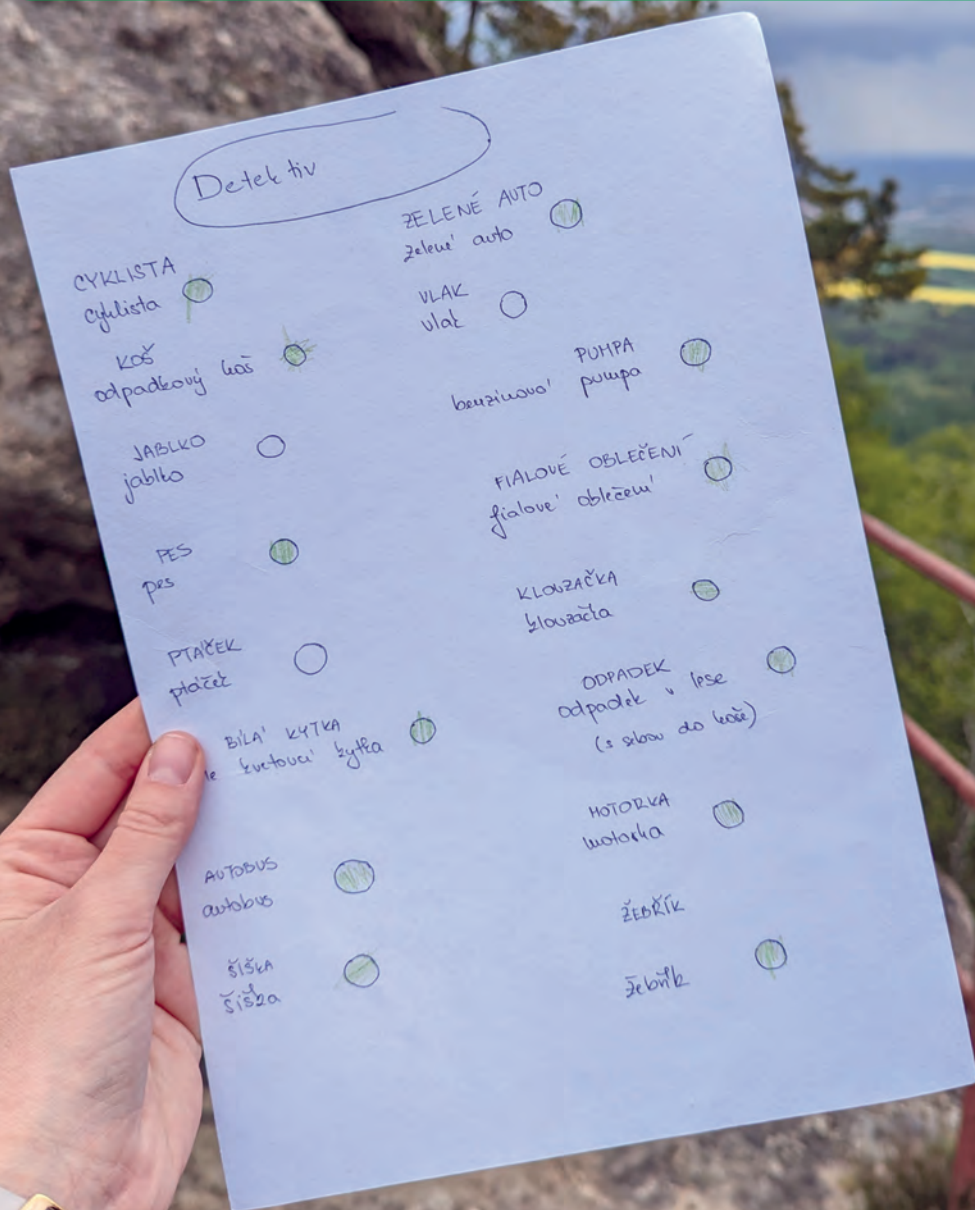 Detektiv
CYKLISTA
cyklista
KOŠ
odpadkový koš
JABLKO
jablko
PES
pes
PTÁČEK
ptáček
BÍLÁ KYTKA
le kvetoucí kytka
AUTOBUS
autobus
ŠIŠKA
šiška
ZELENÉ AUTO
zelené auto
VLAK
vlak
PUMPA
benzinová pumpa
FIALOVÉ OBLEČENÍ
fialové oblečení
KLOUZAČKA
klouzačka
ODPADEK
odpadek v lese
(s sebou do koše)
MOTORKA
motorka
ŽEBŘÍK
žebřík